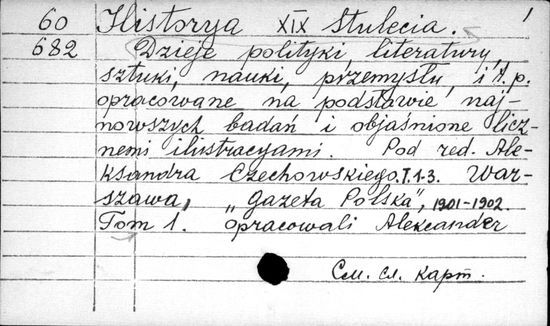 60 Historya XIX stulecia. 1
682 Dzieje polityki, literatury,
sztuki, nauki, przemysłu, i t. p.
opracowane na podstawie naj-
nowszych badań i objaśnione licz-
nemi ilustracyami. Pod red. Ale-
ksandra Czechowskiego. T. 1-3. War-
szawa, „Gazeta Polska", 1901-1902.
Tom 1. opracowali Aleksander
См. сл. карт.